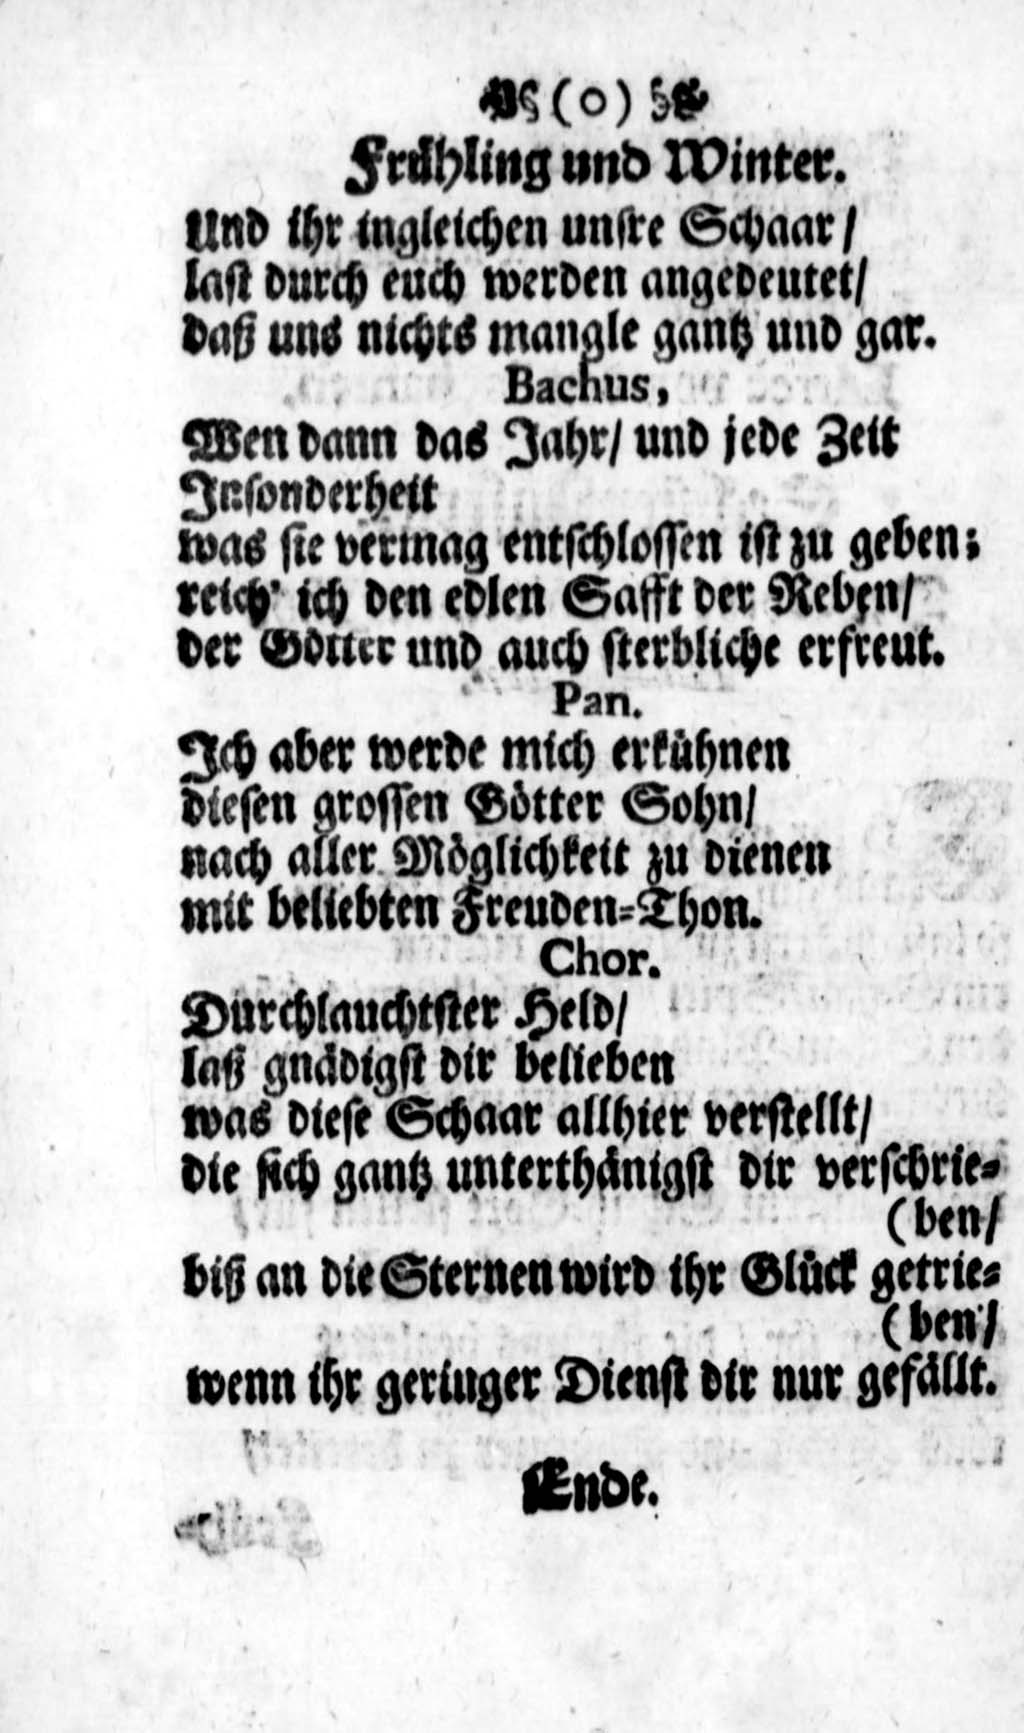 (o)
Frühling und Winter.
Und ihr ingleichen unsre Schaar/
last durch euch werden angedeutet/
daß uns nichts mangle gantz und gar.
Bachus,
Wen dann das Jahr/ und jede Zeit
Insonderheit
was sie vermag entschlossen ist zu geben;
reich' ich den edlen Safft der Reben/
der Götter und auch sterbliche erfreut.
Pan.
Ich aber werde mich erkühnen
diesen grossen Götter Sohn/
nach aller Möglichkeit zu dienen
mit beliebten Freuden-Thon.
Chor.
Durchlauchtster Held/
laß gnädigst dir belieben
was diese Schaar allhier verstellt/
die sich gantz unterthänigst dir verschrie-
(ben/
biß an die Sternen wird ihr Glück getrie-
(ben/
wenn ihr geringer Dienst dir nur gefällt.
Ende.